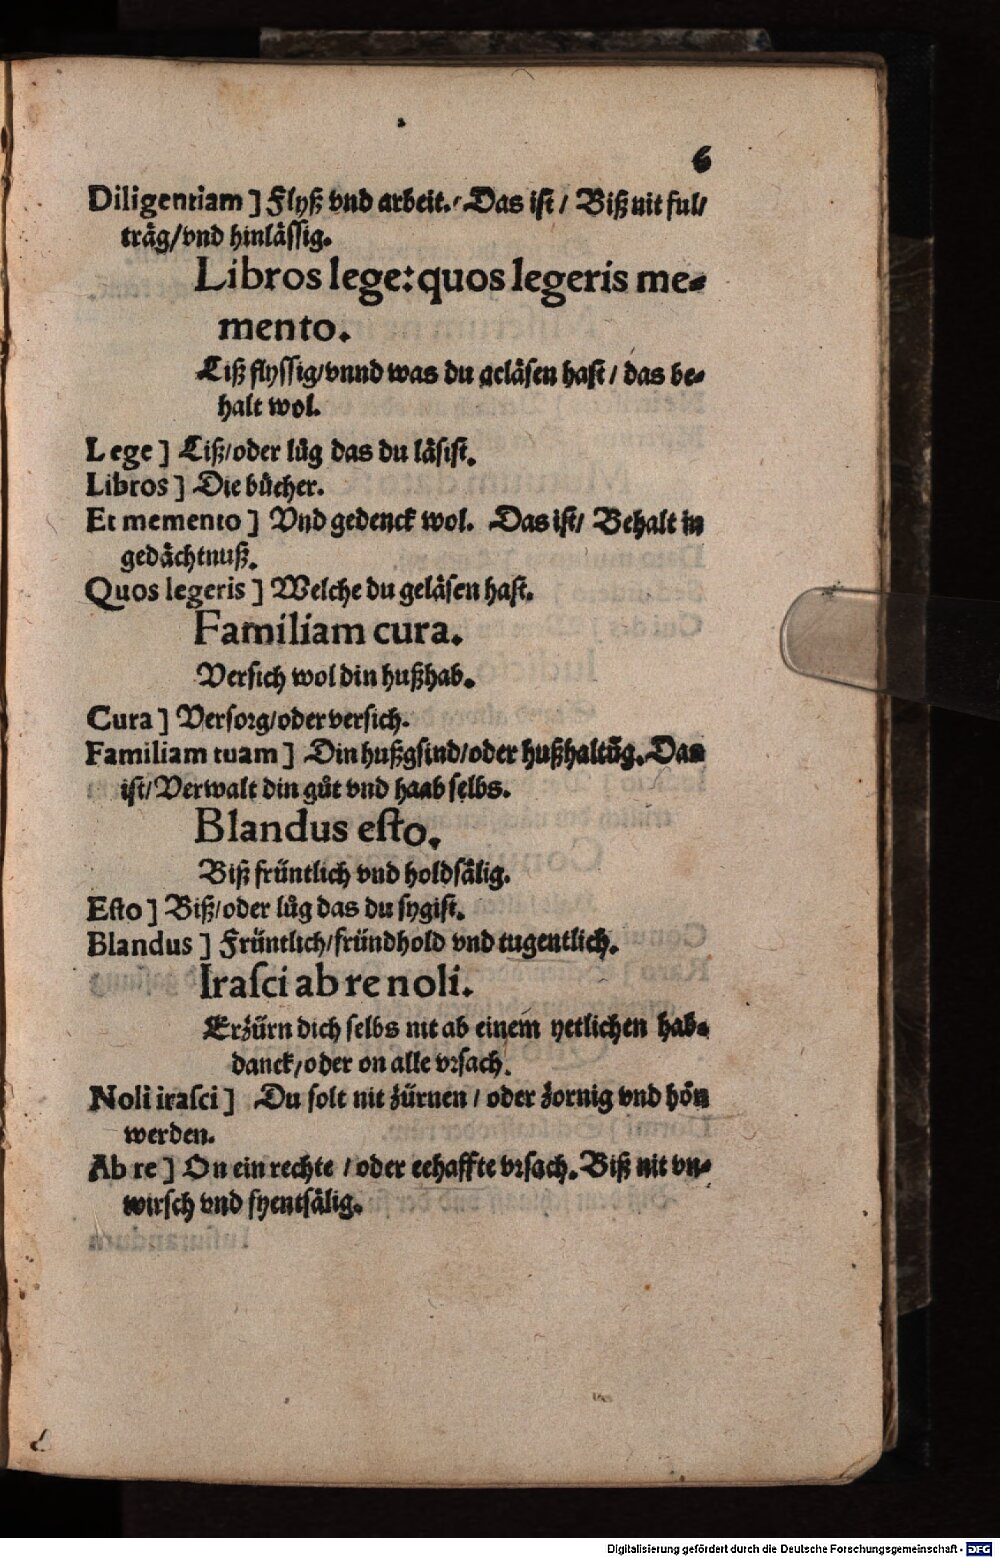 6
Diligentiam ] Flyß vnd arbeit. Das ist / Biß nit ful/
träg/vnd hinlässig.
Libros lege: quos legeris me⸗
mento.
Liß flyssig/vnnd was du geläsen hast / das be⸗
halt wol.
Lege ] Liß/oder lůg das du läsist.
Libros ] Die bücher.
Et memento ] Vnd gedenck wol. Das ist/ Behalt in
gedächtnuß.
Quos legeris ] Welche du geläsen hast.
Familiam cura.
Versich wol din hußhab.
Cura ] Versorg/oder versich.
Familiam tuam ] Din hußgsind/oder hußhaltũg. Das
ist/ Verwalt din gůt vnd haab selbs.
Blandus esto.
Biß früntlich vnd holdsälig.
Esto ] Biß/oder lůg das du sygist.
Blandus ] Früntlich/fründhold vnd tugentlich.
Irasci ab re noli.
Erzürn dich selbs nit ab einem yetlichen hab⸗
danck/oder on alle vrsach.
Noli irasci ] Du solt nit zürnen / oder zornig vnd hön
werden.
Ab re ] On ein rechte / oder eehaffte vrsach. Biß nit vn⸗
wirsch vnd fyentsälig.
Digitalisierung gefördert durch die Deutsche Forschungsgemeinschaft - DFG